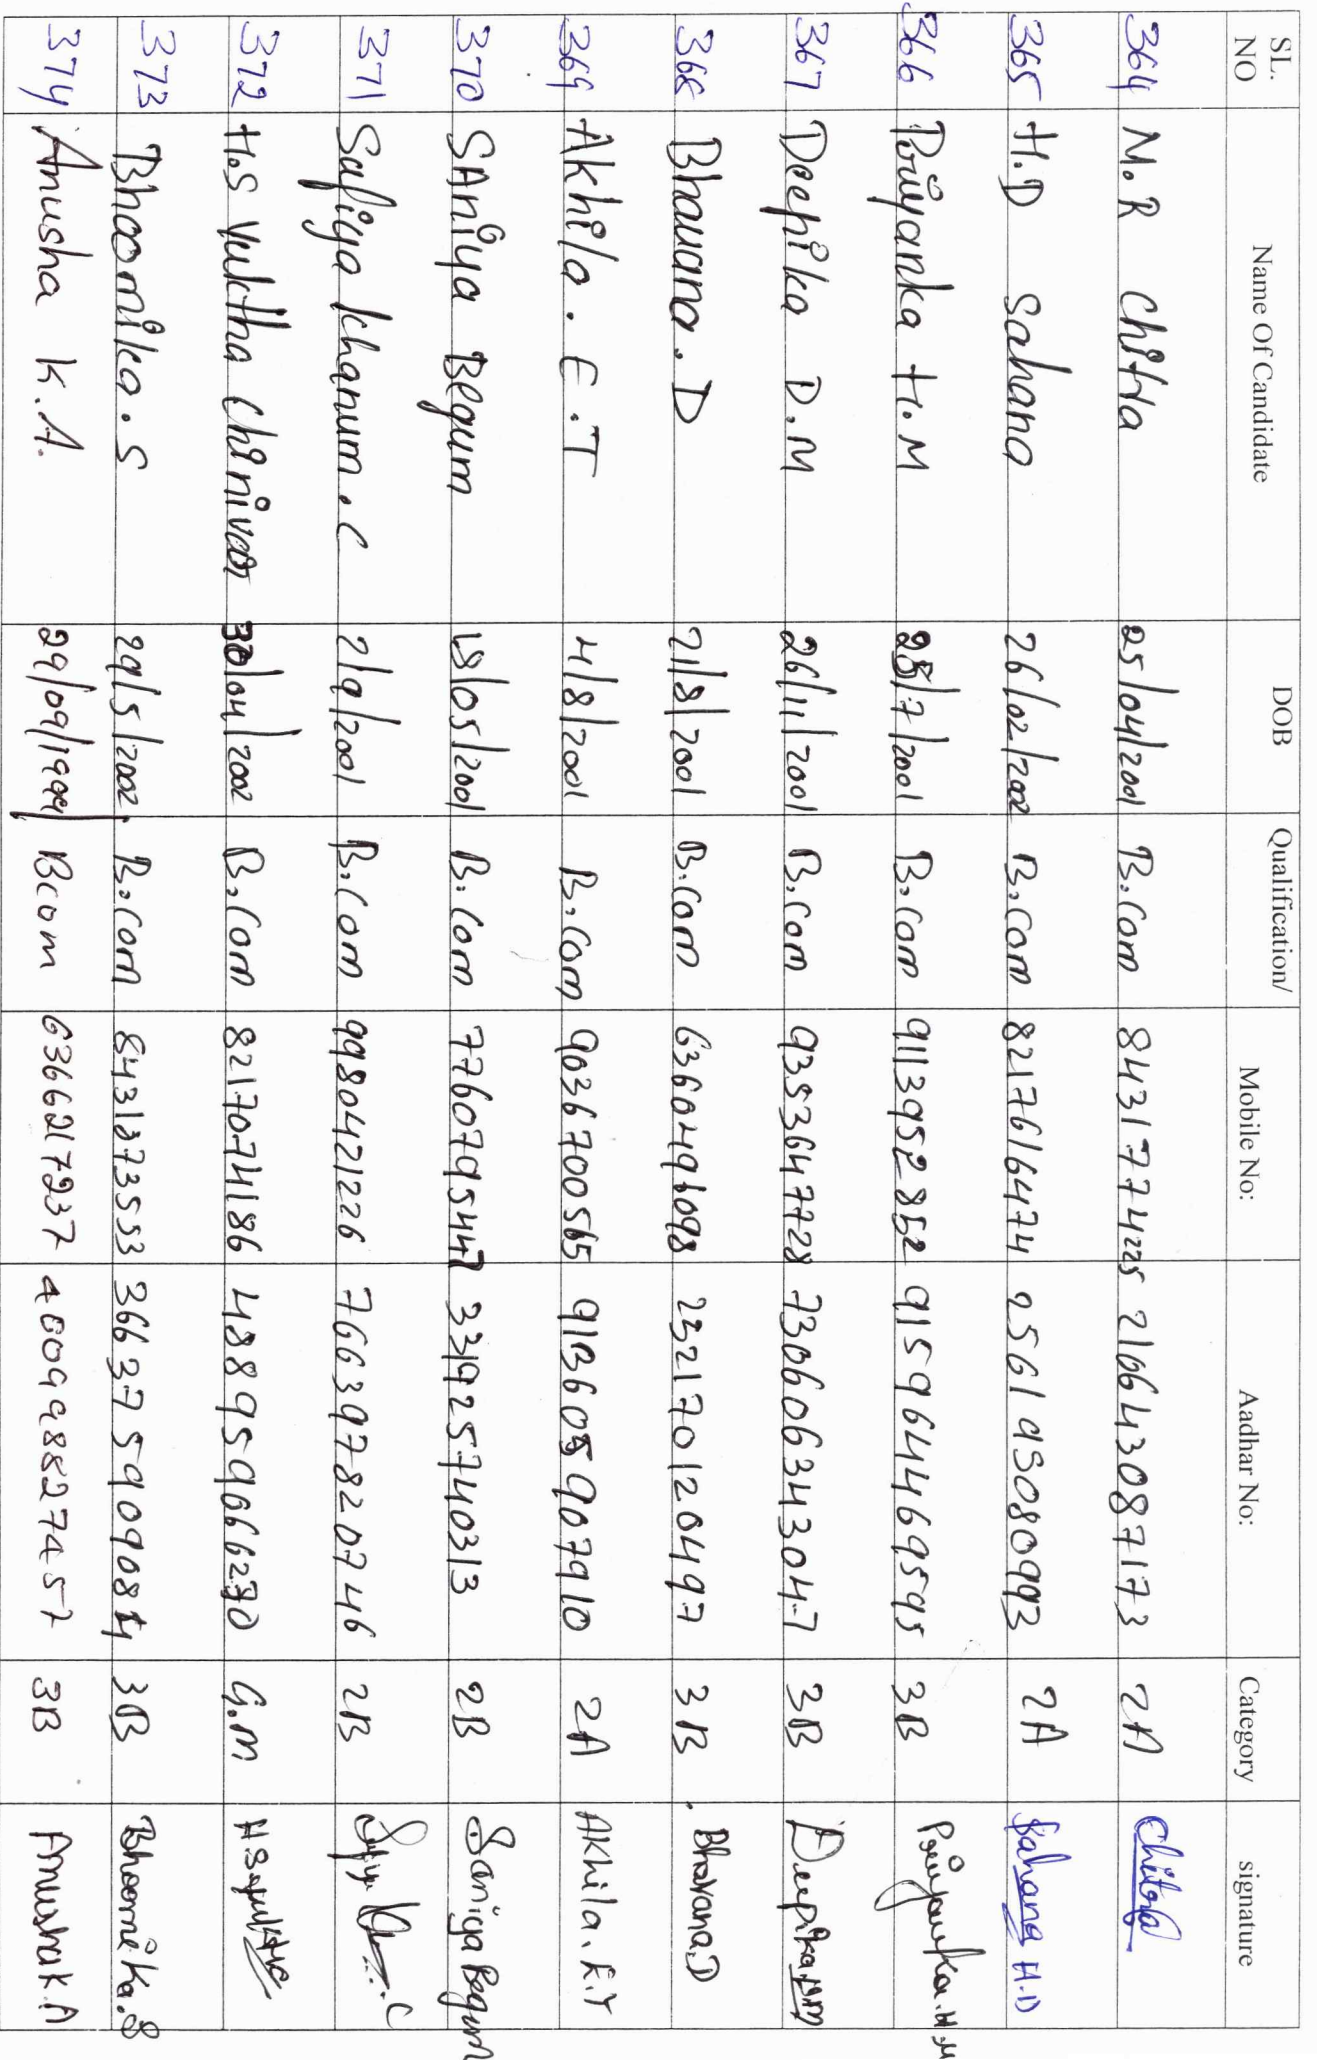 SL. NO Name Of Candidate DOB Qualification/ Mobile No: Aadhar No: Category signature
364 M.R Chitra 25/04/2001 B.com 8431774225 216643087173 2A Chitra
365 H.D Sahana 26/02/2002 B.com 8217616474 256195080993 2A Sahana H.D
366 Priyanka H.M /7/2001 B.com 9113952852 915964469595 3B Priyanka.H.M
367 Deepika D.M 26/11/2001 B.com 9353647728 730606343047 3B Deepika.DM
368 Bhavana.D 21/8/2001 B.com 6360491098 232170120497 3B Bhavana.D
369 Akhila.E.T 4/8/2001 B.com 9036700565 2A AKhila.E.T
370 SAniya Begum /05/2001 B.Com 7760795447 331925740313 2B Saniya Begum
371 Safiya Khanum.C 2/9/2001 B.Com 9980421226 766397820746 2B
372 H.S Yuktha 30/04/2002 B.Com 8217074186 488959666270 G.M
373 Bhoomika.S 29/5/2002 B.com 8431373553 3B Bhoomika.S
374 Anusha K.A. 29/09/1999 Bcom 6366217237 400998827457 3B Anusha K.A